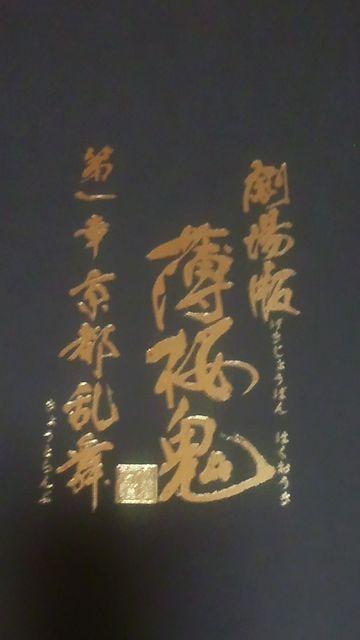 劇場版
げきじょうばん はくおうき
薄桜鬼
第一章 京都乱舞
きょうとらんぶ